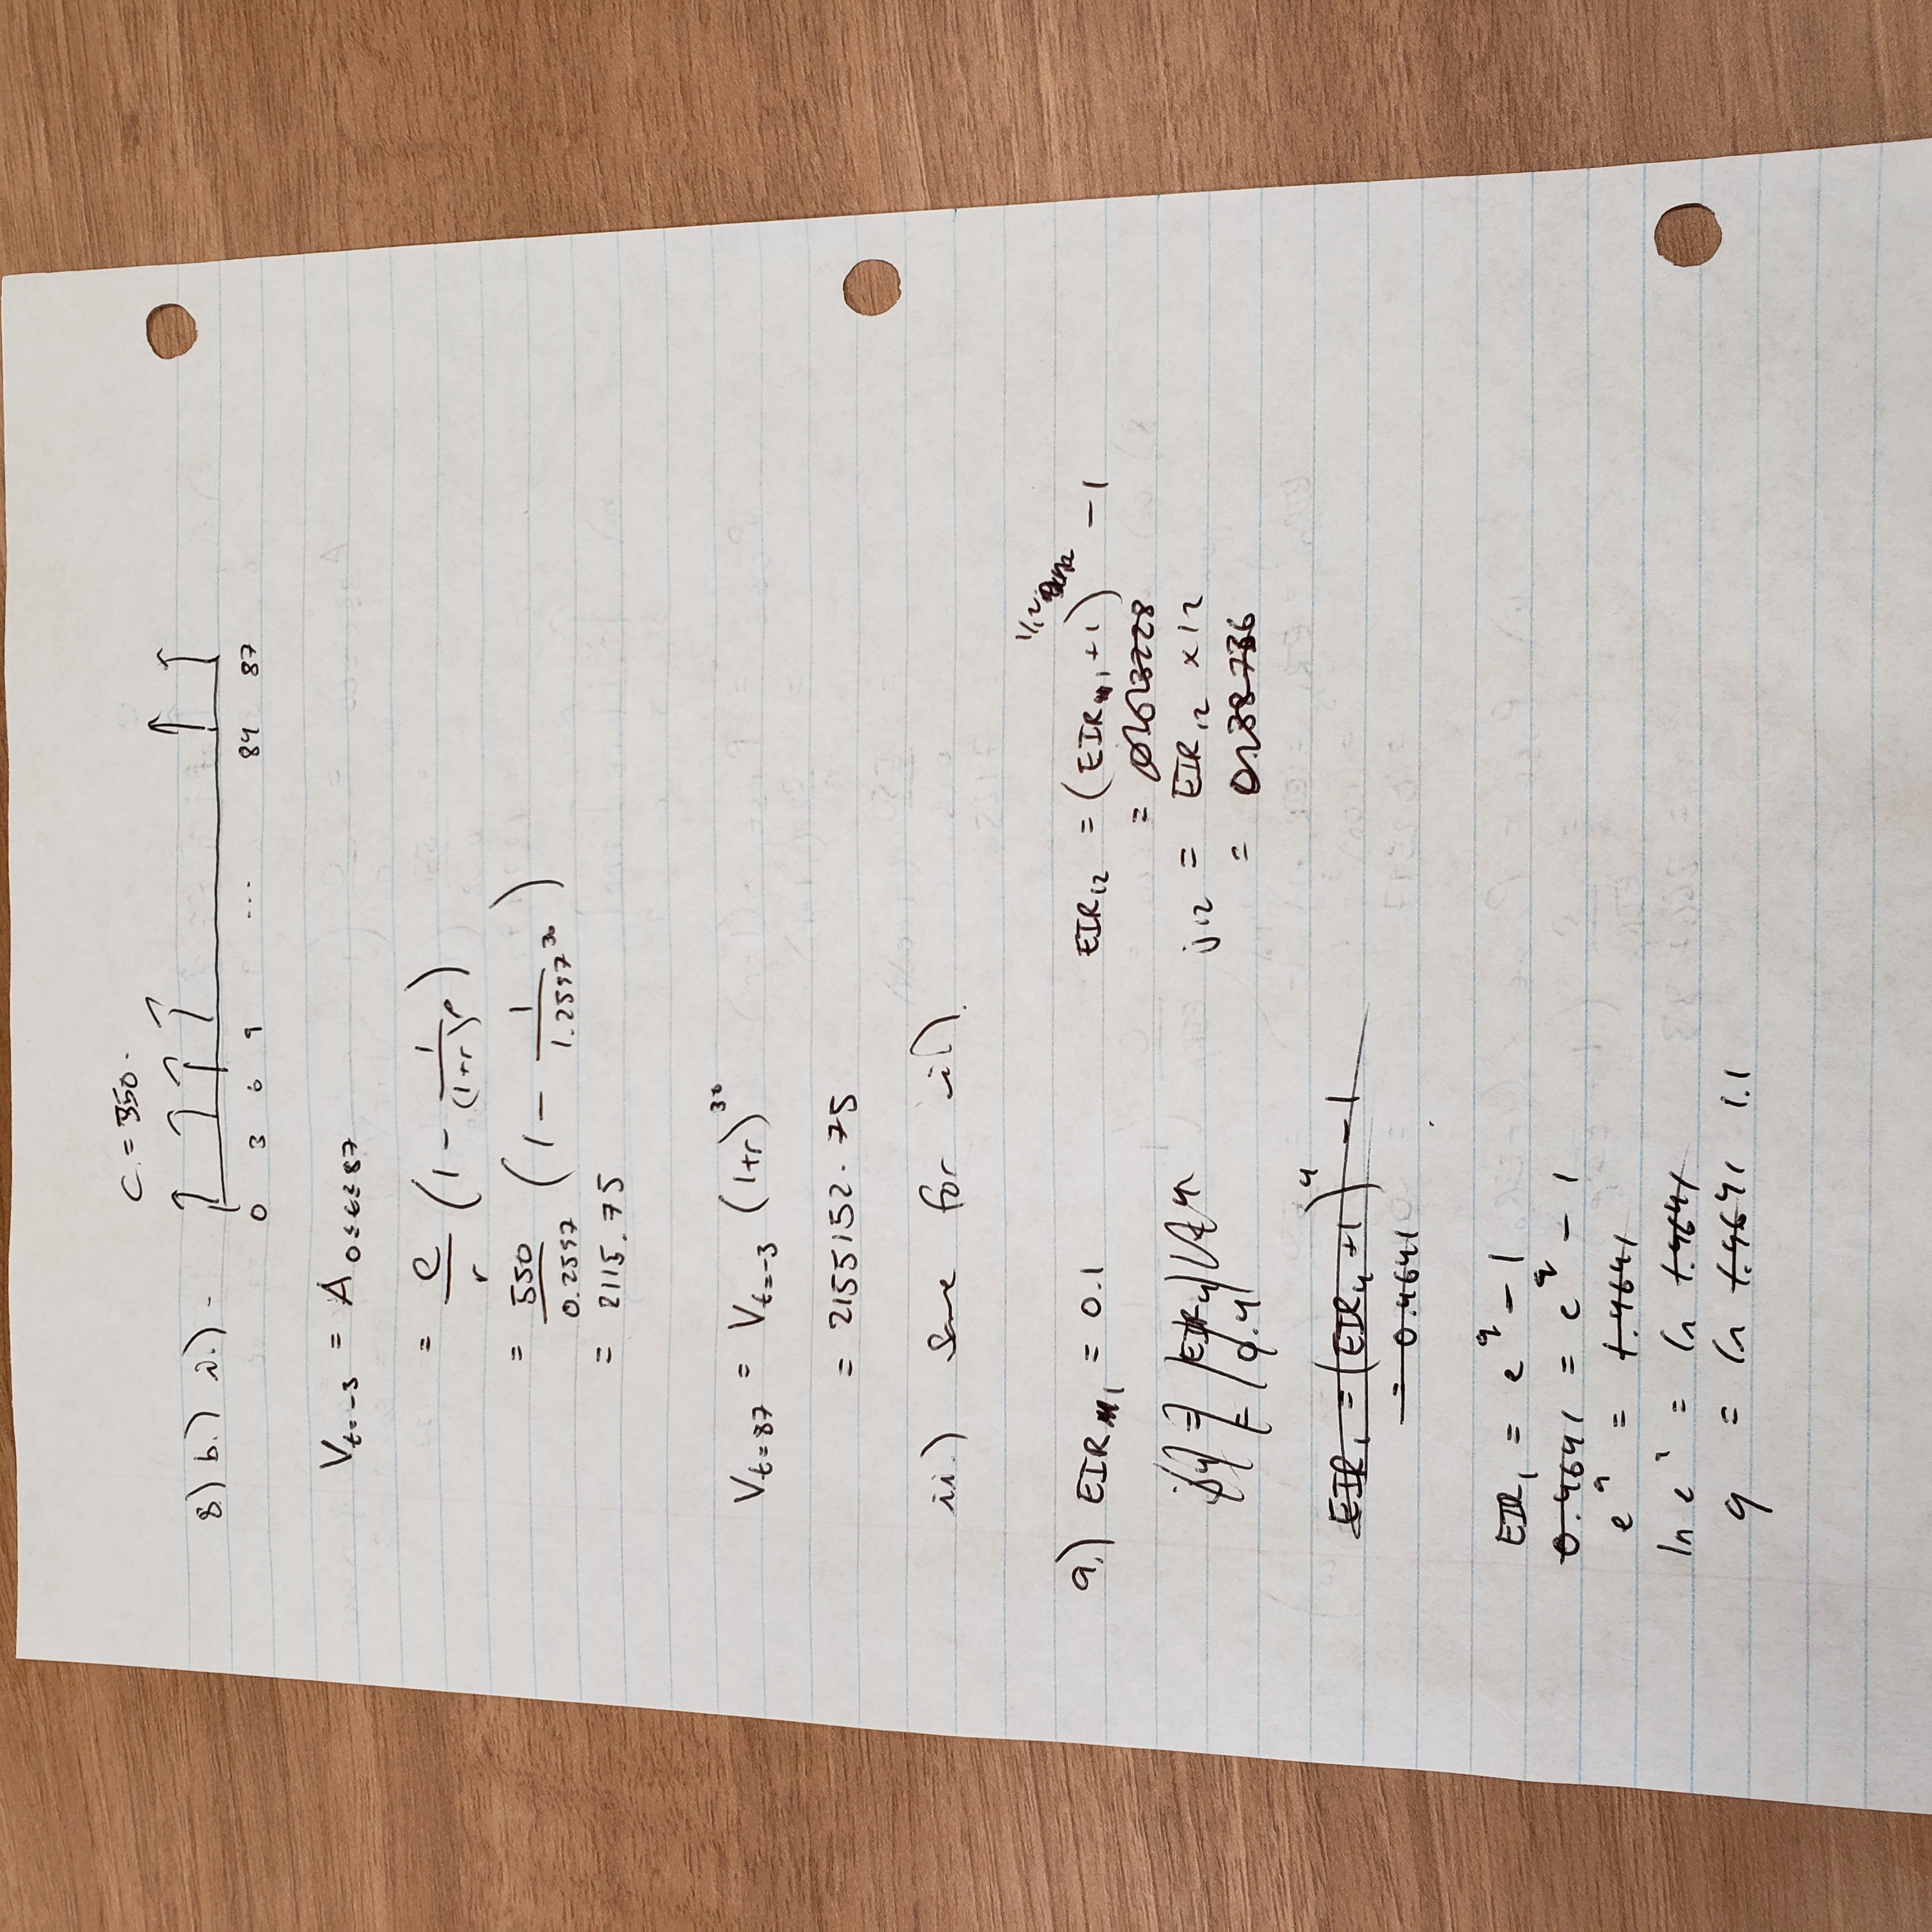 C = 550.
8) b.) i.) -
0 3 6 9 ... 84 87
V_{t=-3} = A_{0≤t≤87}
= \frac{C}{r} (1 - \frac{1}{(1+r)^p})
= \frac{550}{0.2597} (1 - \frac{1}{1.2597^{30}})
= 2115.75
V_{t=87} = V_{t=-3} (1+r)^{30}
= 2155152.75
ii.) Same for i.)
9.) EIR_1 = 0.1
j_4 = EIR_4 × 4
= 0.4
EIR_1 = (EIR_4 + 1)^4 - 1
= 0.4641
EIR_1 = e^q - 1
0.4641 = e^q - 1
e^q = 1.4641
ln e^q = ln 1.4641
q = ln 1.4641 1.1
EIR_{12} = (EIR_1 + 1)^{1/12} - 1
= 0.03228
j_{12} = EIR_{12} × 12
= 0.38736